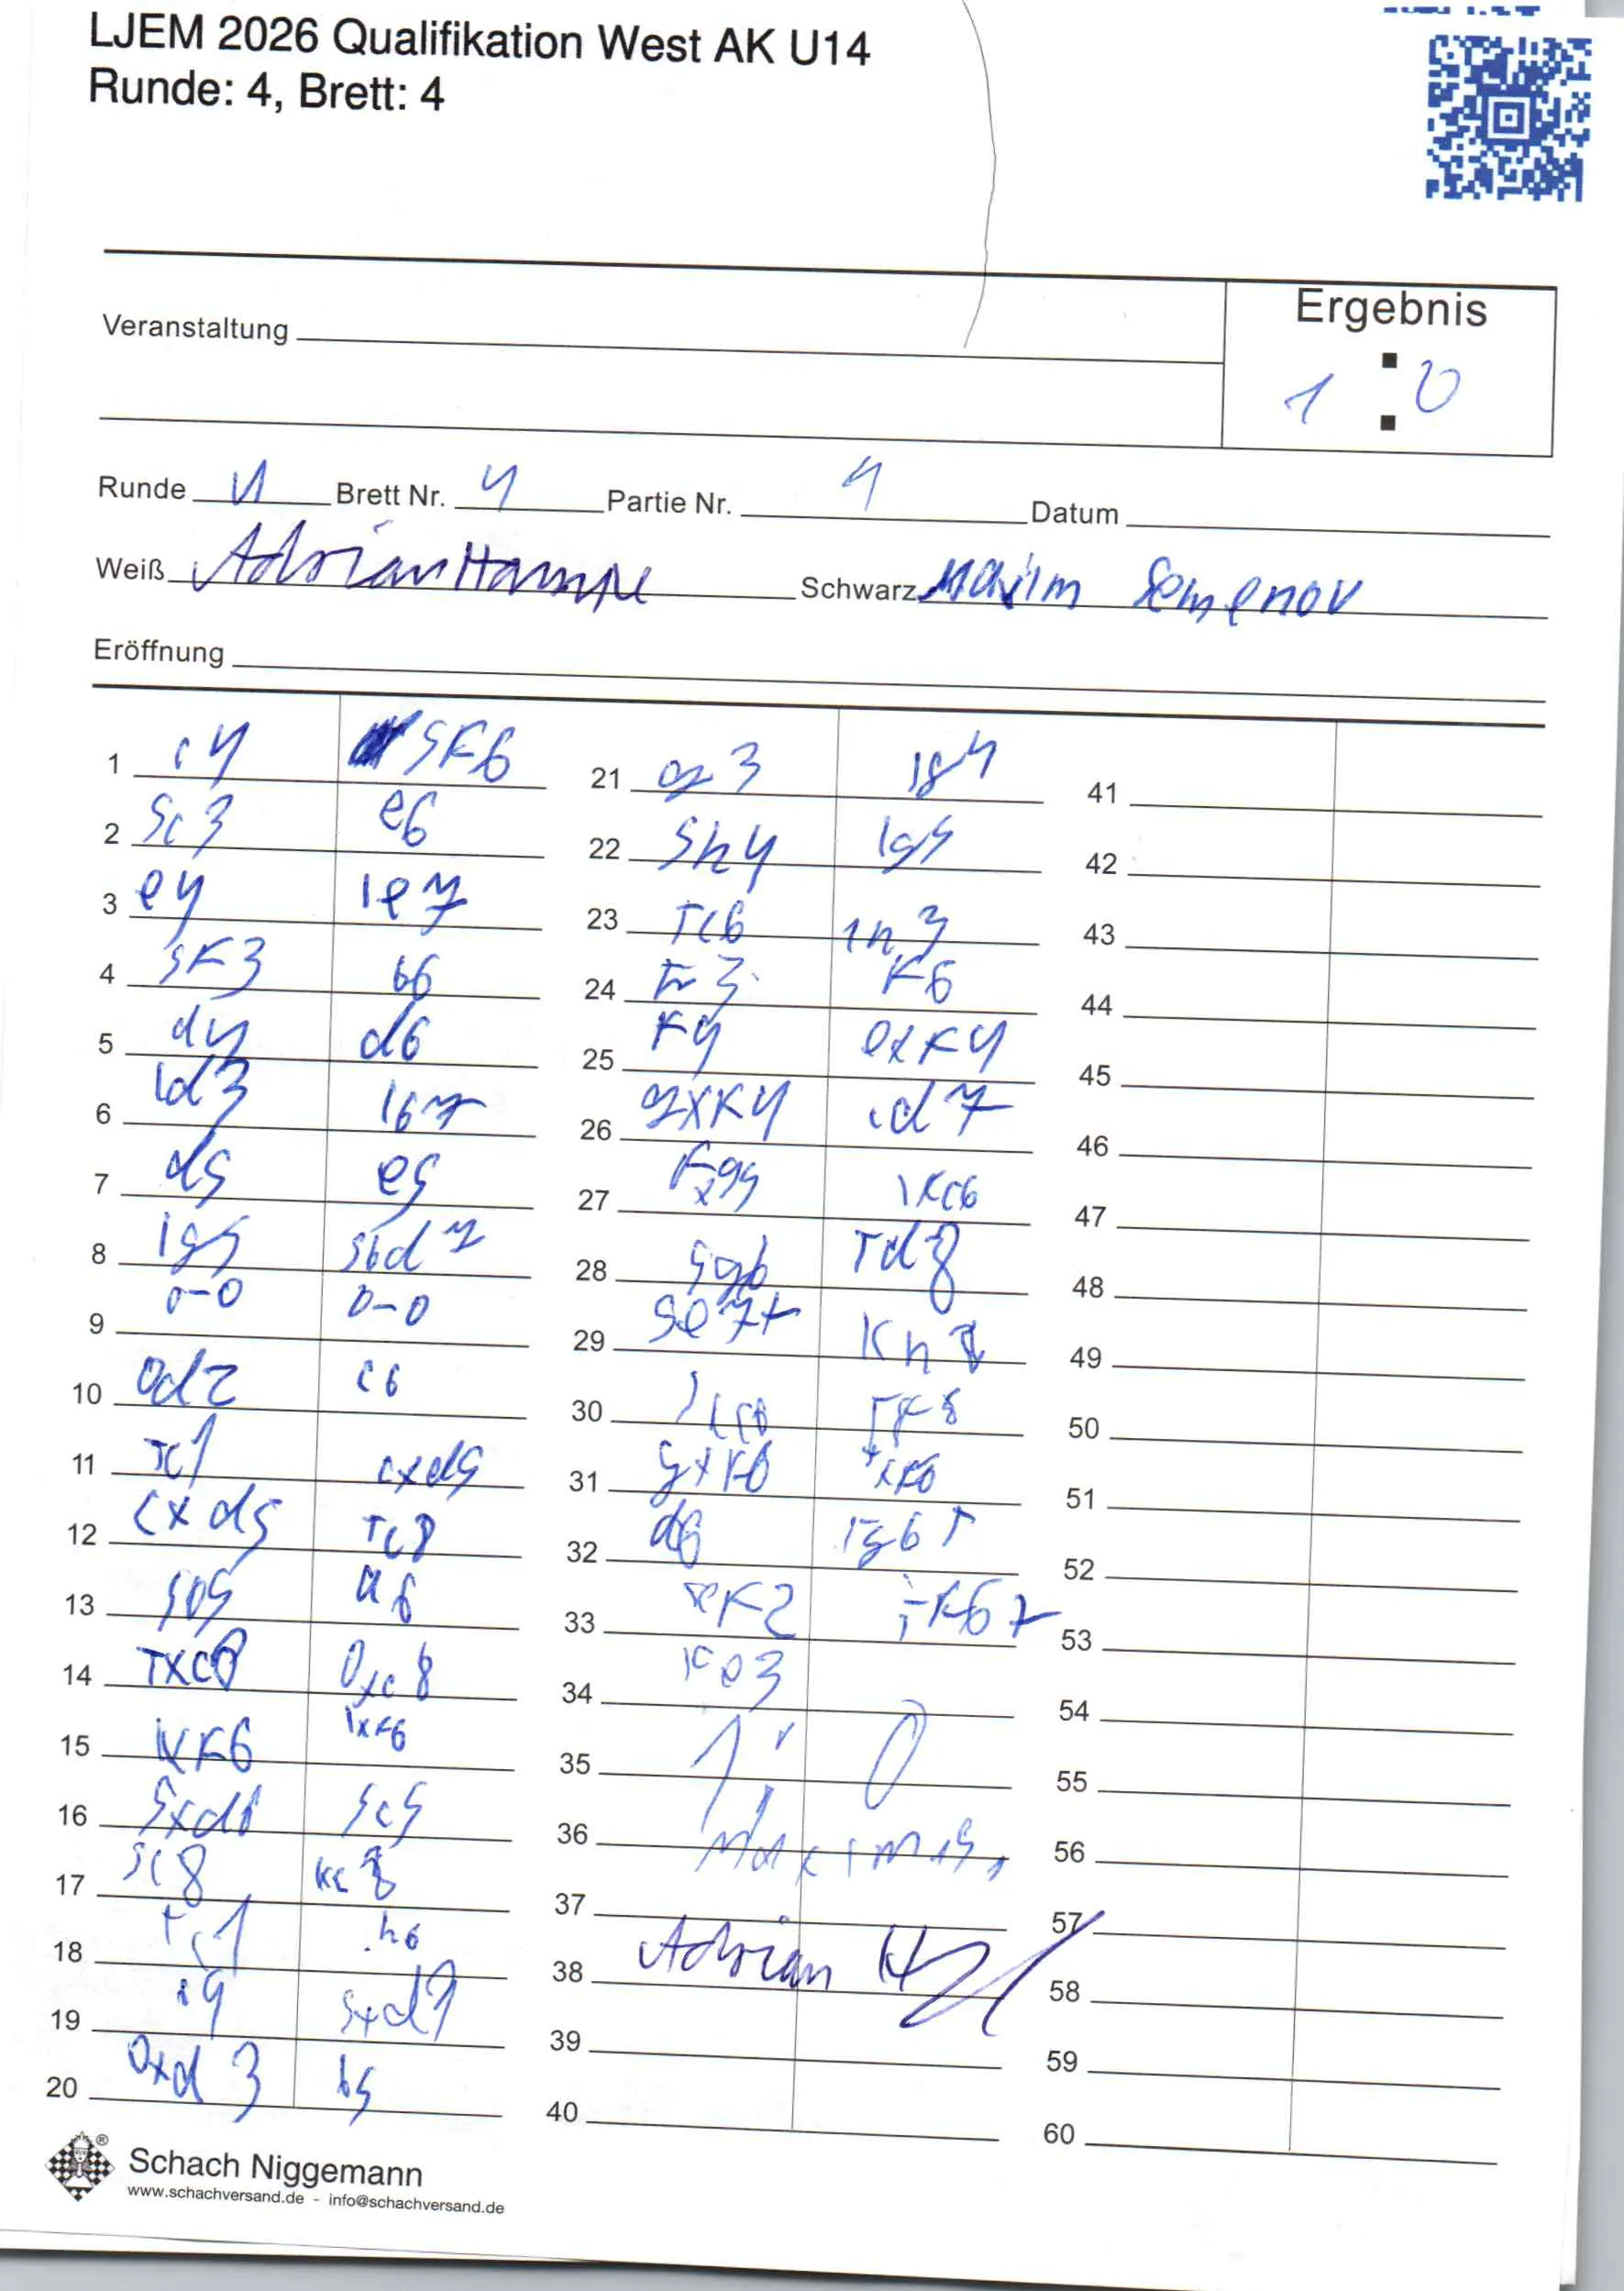 LJEM 2026 Qualifikation West AK U14
Runde: 4, Brett: 4
Ergebnis
1 : 0
Veranstaltung
Runde 4 Brett Nr. 4 Partie Nr. 4 Datum
Weiß Adrian Hampe Schwarz Maxim Semenov
Eröffnung
1 c4 SF6
2 Sc3 e6
3 e4 le7
4 SF3 b6
5 d4 d6
6 ld3 lb7
7 d5 e5
8 lg5 Sbd7
9 0-0 0-0
10 Dd2 c6
11 Tc1 cxd5
12 cxd5 Tc8
13 Sb5 a6
14 Txc8 Dxc8
15 lxF6 lxF6
16 Sxd6 Sc5
17 Sc8
18 Tc1 h6
19 Sxd3
20 Dxd3 b5
21 g3 lg4
22 Sh4 lg5
23 Tc6 lh3
24 F6
25 F4 exF4
26 gxF4 ld7
27 Fxg5 lxc6
28 Sg6 Td8
29 Se7+ Kh7
30 TF8
31 gxF6 TxF6
32 d6 Tg6+
33 KF2 TF6+
34 Ke3
35 1 : 0
36
37
38 Adrian H
39
40
41
42
43
44
45
46
47
48
49
50
51
52
53
54
55
56
57
58
59
60
Schach Niggemann
www.schachversand.de - info@schachversand.de